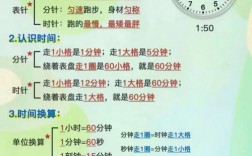 表针
分针：匀速跑步，身材匀称
时针：跑的最慢，最矮最胖
1:50
2.认识时间：
分针
走1小格是1分钟；走1大格是5分钟；
绕着表盘走1圈是60小格，就是60分钟
时针
走1小格是12分钟；走1大格是60分钟，
绕着表盘走1大格，就是60分钟
3.时间换算：
单位换算
1小时=60分钟
1分钟=60秒
1刻钟=15分钟
分钟走1圈=时钟走1大格
秒钟走1圈=分钟走1小格